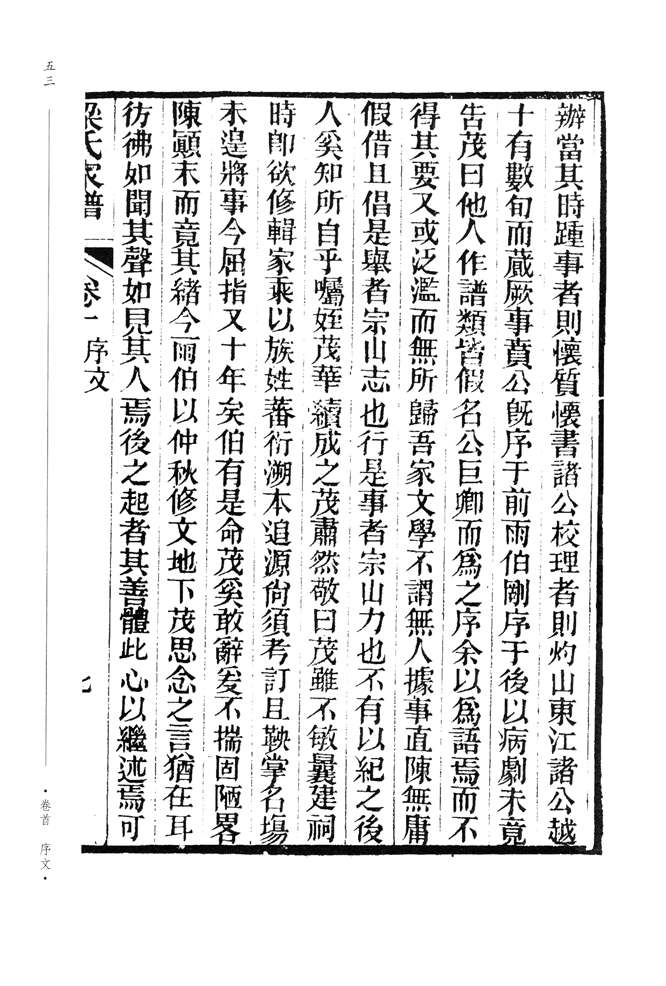 辦當其時踵事者則懷質懷書諸公校理者則灼山東江諸公越
十有數旬而蕆厥事賁公旣序于前雨伯剛序于後以病劇未竟
告茂曰他人作譜類皆假名公巨卿而爲之序余以爲語焉而不
得其要又或泛濫而無所歸吾家文學不謂無人據事直陳無庸
假借且倡是舉者宗山志也行是事者宗山力也不有以紀之後
人奚知所自乎囑姪茂華續成之茂肅然敬曰茂雖不敏曩建祠
時卽欲修輯家乘以族姓蕃衍溯本追源尙須考訂且鞅掌名場
未遑將事今屈指又十年矣伯有是命茂奚敢辭爰不揣固陋畧
陳顚末而竟其緒今雨伯以仲秋修文地下茂思念之言猶在耳
彷彿如聞其聲如見其人焉後之起者其善體此心以繼述焉可
梁氏家譜 卷一 序文 七
五三
·卷首 序文·